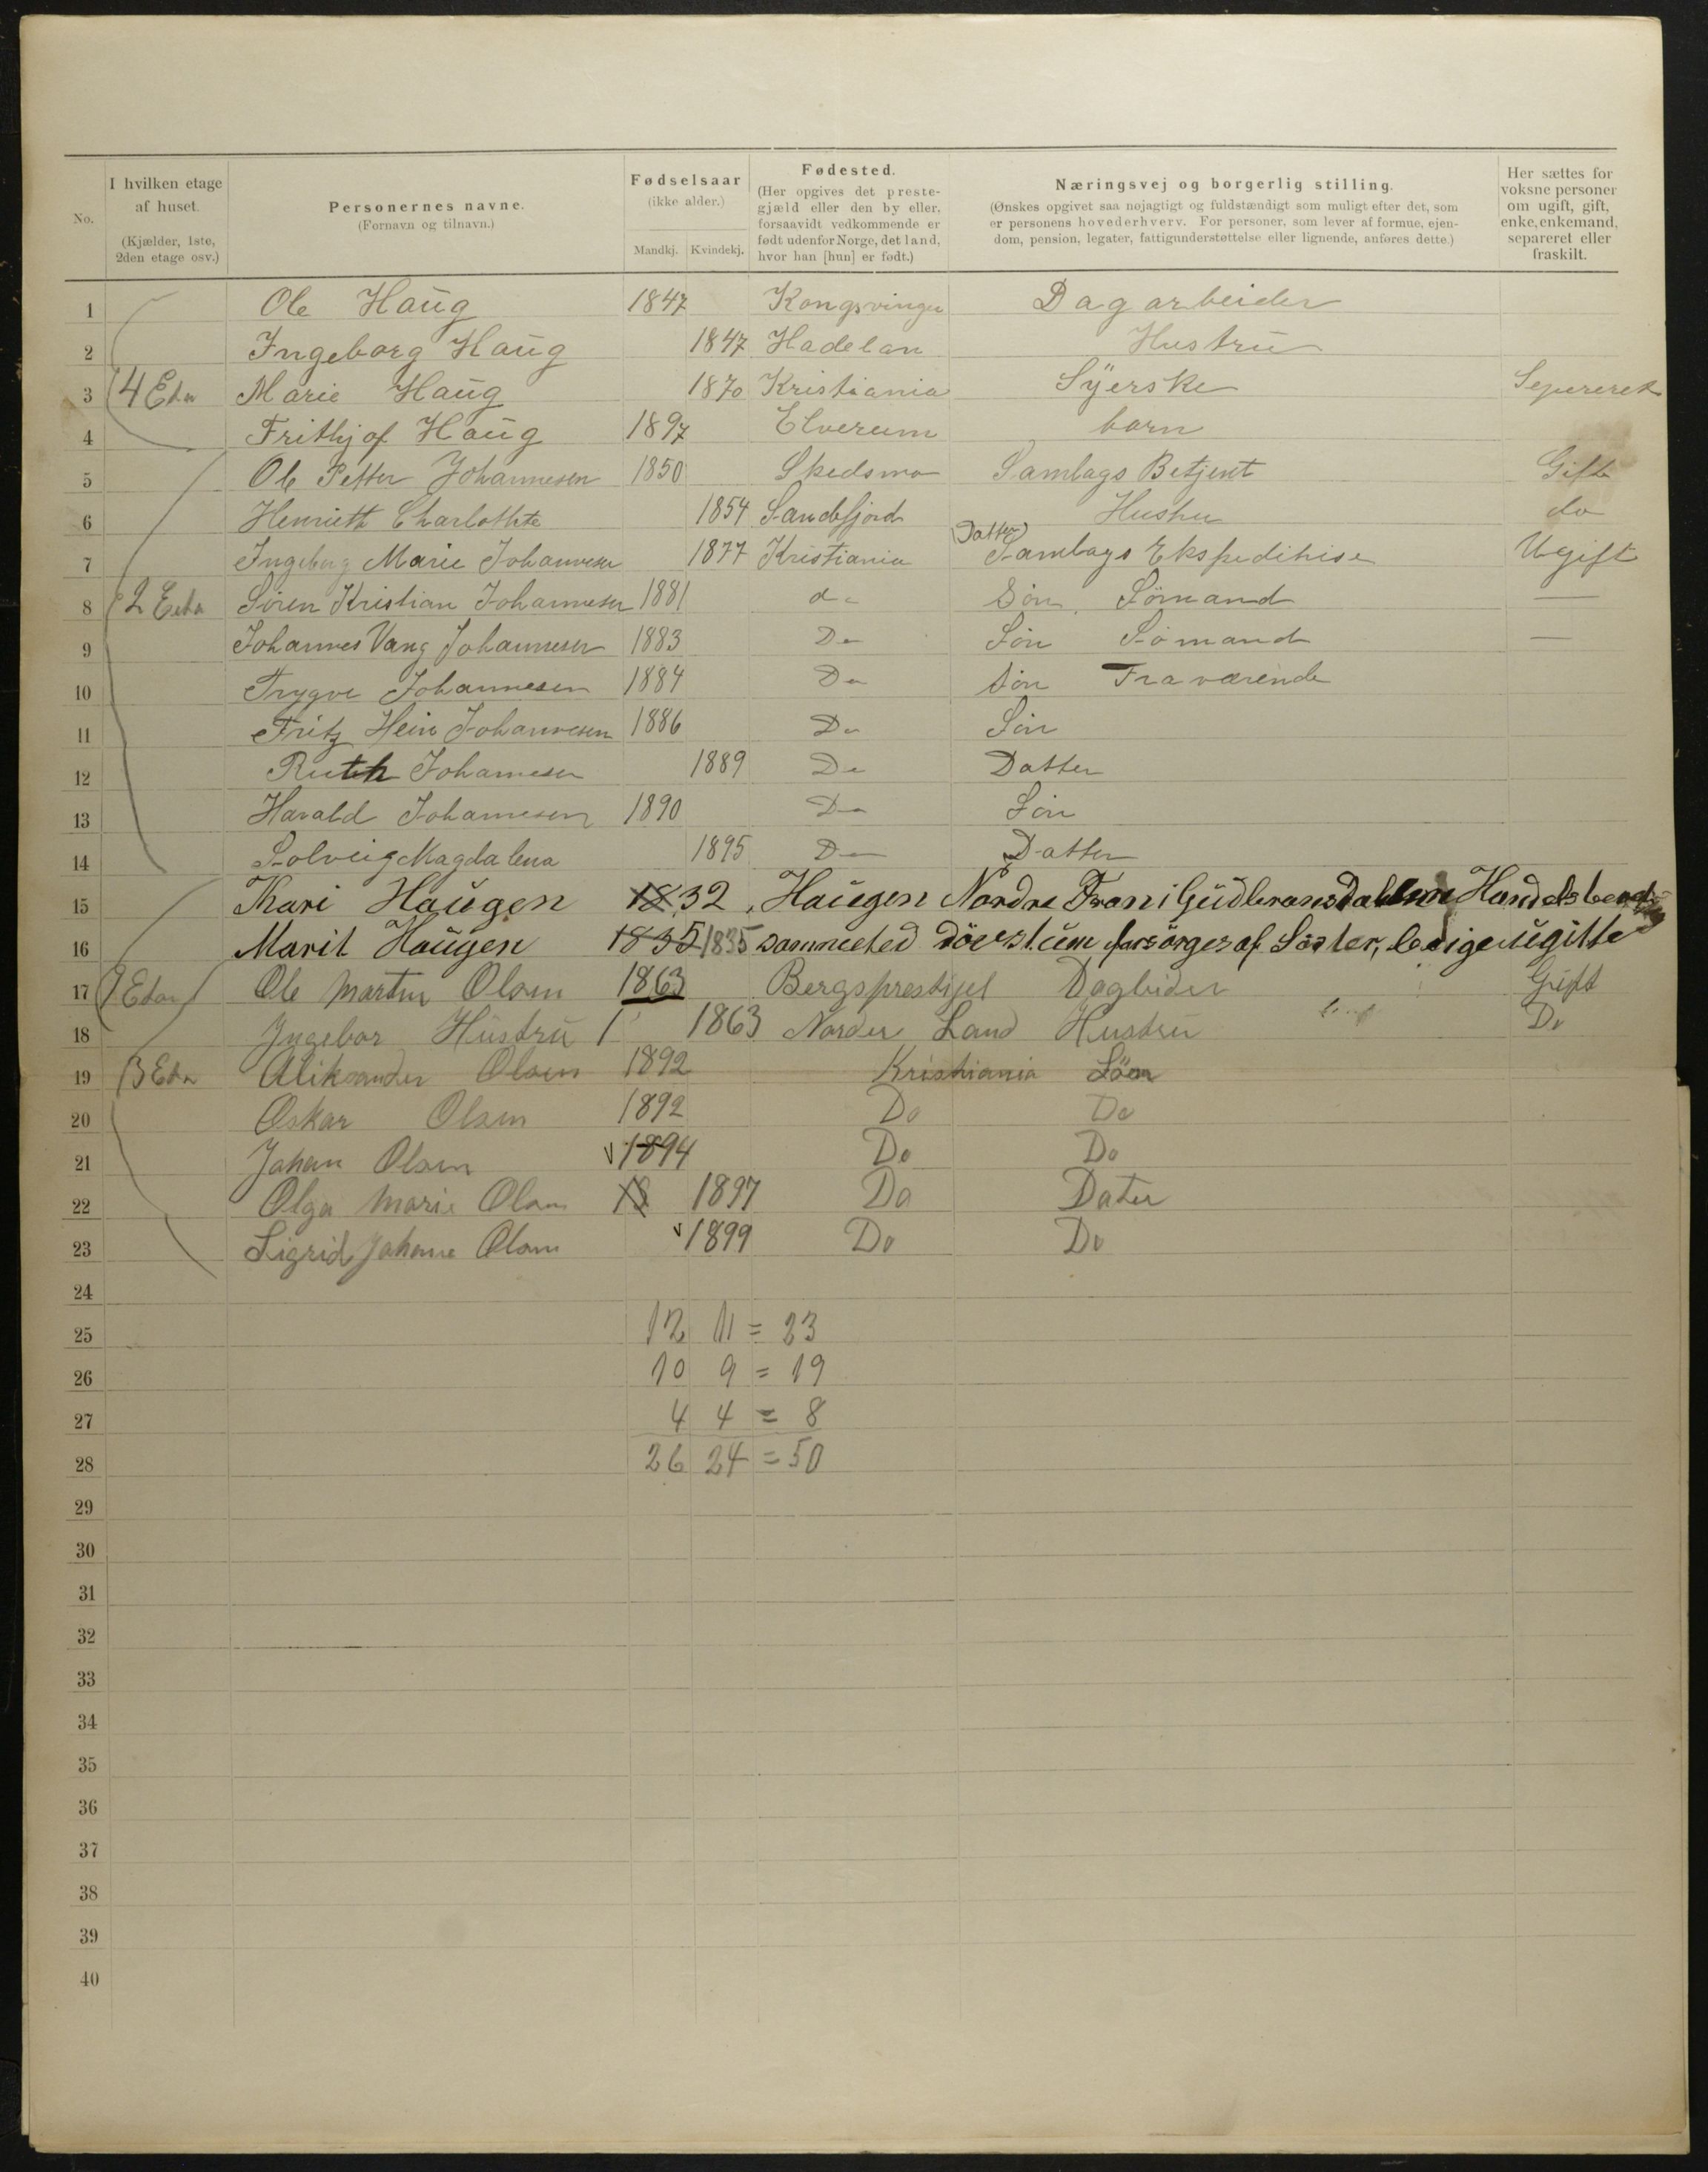 No.
I hvilken etage af huset.
(Kjælder, 1ste, 2den etage osv.)
Personernes navne.
(Fornavn og tilnavn.)
Fødselsaar
(ikke alder.)
Mandkj. Kvindekj.
Fødested.
(Her opgives det prestegjæld eller den by eller, forsaavidt vedkommende er født udenfor Norge, det land, hvor han [hun] er født.)
Næringsvej og borgerlig stilling.
(Ønskes opgivet saa nøjagtigt og fuldstændigt som muligt efter det, som er personens hovederhverv. For personer, som lever af formue, ejendom, pension, legater, fattigunderstøttelse eller lignende, anføres dette.)
Her sættes for voksne personer om ugift, gift, enke, enkemand, separeret eller fraskilt.
1 Ole Haug 1847 Kongsvinger Dagarbeider
2 Ingeborg Haug 1847 Hadelan Hustru
3 4 Eta Marie Haug 1870 Kristiania Syerske Sepereret
4 Frithjof Haug 1897 Elverum barn
5 Ole Petter Johannesen 1850 Skedsmo Samlags Betjent Gift
6 Henriette Charlothte 1854 Sandefjord Hustru do
7 Ingeborg Marie Johannesen 1877 Kristiania (Datter) Samlags Ekspeditrise Ugift
8 2 Eeta Sören Kristian Johannesen 1881 do Sön Sömand —
9 Johannes Vang Johannesen 1883 Do Sön Sömand —
10 Trygve Johannesen 1884 Do Sön Fraværende
11 Fritz Hein Johannesen 1886 Do Sön
12 Ruth Johannesen 1889 Do Datter
13 Harald Johannesen 1890 Do Sön
14 Solveig Magdalena 1895 Do Datter
15 Kari Haugen 18 32 Haugen Nordre Fron i Gudbransdahlen
16 Marit Haugen 1835 1835 sammested dövstum forsörges af Söster, ledige ugitte
17 1 Eta Ole Martin Olsen 1863 Bergsprestijel Dagbeider Gift
18 Ingebor Hustru 1863 Norder Land Hustru Do
19 3 Eta Aliksander Olsen 1892 Kristiania Sön
20 Oskar Olsen 1892 Do Do
21 Johan Olsen 1894 Do Do
22 Olga Marie Olsen 18 1897 Do Dater
23 Sigrid Johane Olsen 1899 Do Do
24
25 12 11 = 23
26 10 9 = 19
27 4 4 = 8
28 26 24 = 50
29
30
31
32
33
34
35
36
37
38
39
40